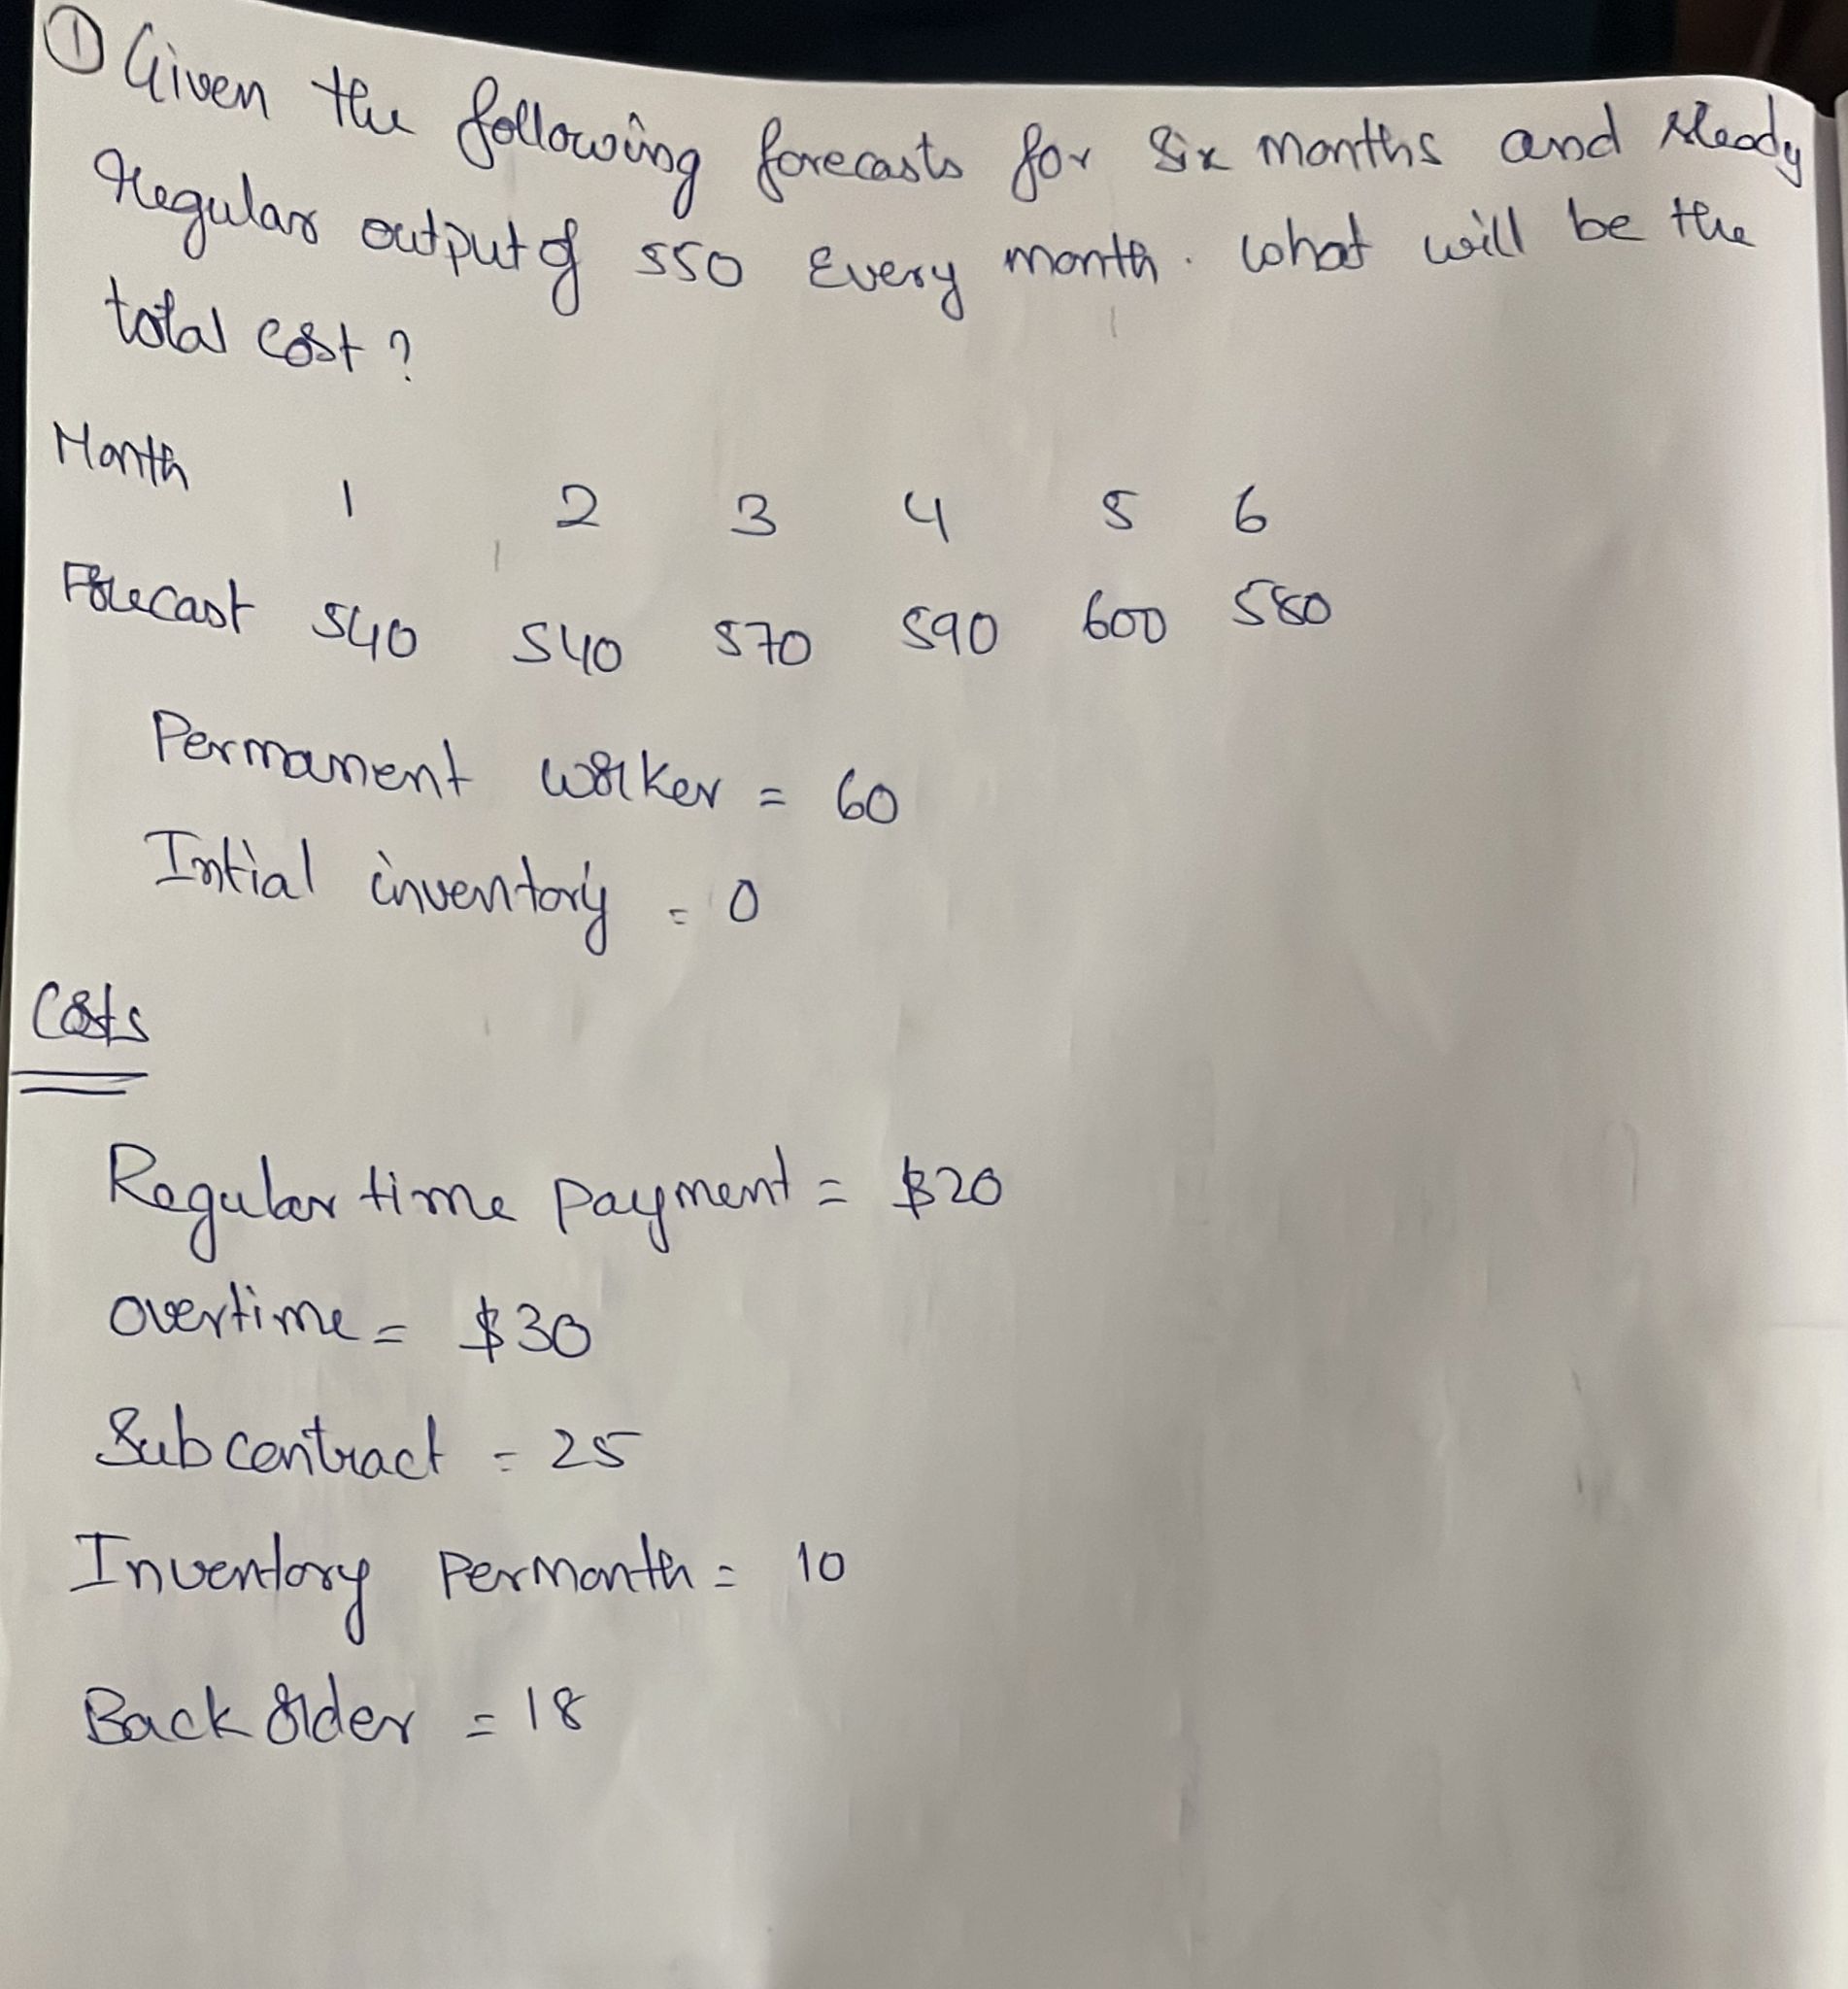 ① Given the following forecasts for six months and steady
regular output of 550 every month. what will be the
total cost?
Month 1 2 3 4 5 6
Forecast 540 540 570 590 600 580
Permanent worker = 60
Intial inventory = 0
Costs
Regular time payment = $20
overtime = $30
Subcontract = 25
Inventory per month = 10
Back order = 18